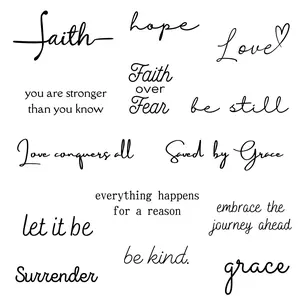 faith
hope
Love
you are stronger
than you know
Faith
over
Fear
be still
Love conquers all
Saved by Grace
everything happens
for a reason
let it be
embrace the
journey ahead
be kind.
Surrender
grace